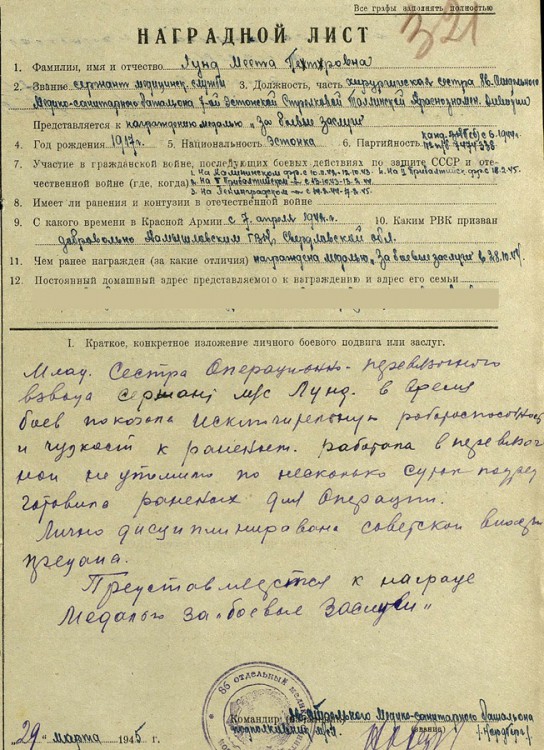 Все графы заполнять полностью
321
НАГРАДНОЙ ЛИСТ
1. Фамилия, имя и отчество Лунд Меета Петровна
2. Звание сержант медицинск. службы 3. Должность, часть хирургическая сестра 86 Отдельного
Медико-санитарного батальона 7-ой Эстонской Стрелковой Таллинской Краснознамен. дивизии
Представляется к награждению медалью „За боевые заслуги“
4. Год рождения 1917г. 5. Национальность эстонка 6. Партийность канд.
7. Участие в гражданской войне, последующих боевых действиях по защите СССР и оте-
чественной войне (где, когда)
8. Имеет ли ранения и контузии в отечественной войне
9. С какого времени в Красной Армии с 7 апреля 10. Каким РВК призван
добровольно Камышловским ГВК Свердловской обл.
11. Чем ранее награжден (за какие отличия) награждена медалью „За боевые заслуги“ в 28.10.44.
12. Постоянный домашний адрес представляемого к награждению и адрес его семьи
I. Краткое, конкретное изложение личного боевого подвига или заслуг.
Млад. Сестра Операционн-перевязочного
взвода сержант м/с Лунд. в время
боев показала исключительную работоспособность
и чуткость к раненым. работала в перевязоч
ной не утомимо по несколько суток подряд
готовила раненых для Операции.
Лично дисциплинирована советской
предана.
Представляется к награде
Медалью За „боевые Заслуги“
86 отдельный медико
29 марта 1945 г.
Командир 86 Отдельного Медико-санитарного батальона
подполковник м/с (звание)